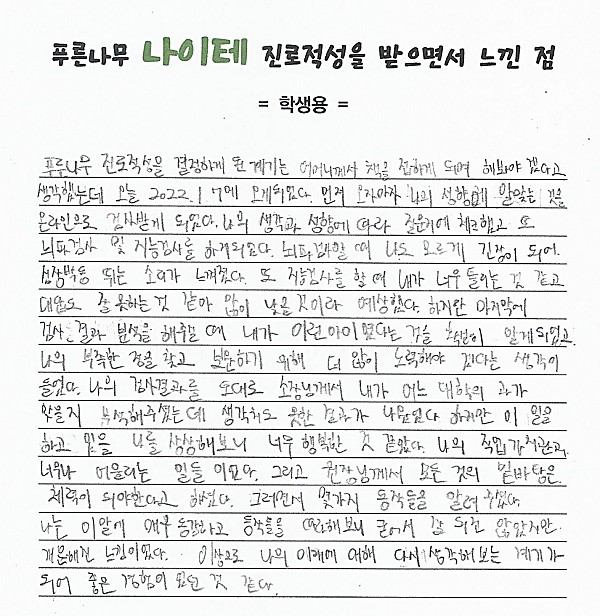 푸른나무 나이테 진로적성을 받으면서 느낀 점
= 학생용 =
푸른나무 진로적성을 결정하게 된 계기는 어머니께서 책을 접하게 되며 해봐야 겠다고
생각했는데 오늘 2022. 1 7에 오게되었다. 먼저 오자마자 나의 성향에 알맞는 것을
온라인으로 검사받게 되었다. 나의 생각과 성향에 따라 질문에 체크했고 또
뇌파검사 및 지능검사를 하게되었다. 뇌파검사할 때 나도 모르게 긴장이 되어
심장박동 뛰는 소리가 느껴졌다. 또 지능검사를 할 때 내가 너무 틀리는 것 같고
대답도 잘 못하는 것 같아 많이 낮을 것이라 예상했다. 하지만 마지막에
검사 결과 분석을 해주실 때 내가 이런아이 였다는 걸을 확실히 알게 되었고
나의 부족한 점을 찾고 보완하기 위해 더 많이 노력해야 겠다는 생각이
들었다. 나의 검사결과를 토대로 소장님께서 내가 어느 대학의 과가
맞을지 분석해주셨는데 생각치도 못한 결과가 나왔었다 하지만 이 일을
하고 있을 나를 상상해보니 너무 행복한 것 같았다. 나의 직업가치관과
너무나 어울리는 일들 이었다. 그리고 원장님께서 모든 것의 밑바탕은
체력이 되야한다고 하셨다. 그러면서 몇가지 동작들을 알려 주셨다.
나는 이말에 매우 동감하고 동작들을 따라해보니 굳어서 잘 되진 않았지만
개운해진 느낌이었다. 이상으로 나의 미래에 대해 다시 생각해 보는 계기가
되어 좋은 경험이 었던 것 같다.